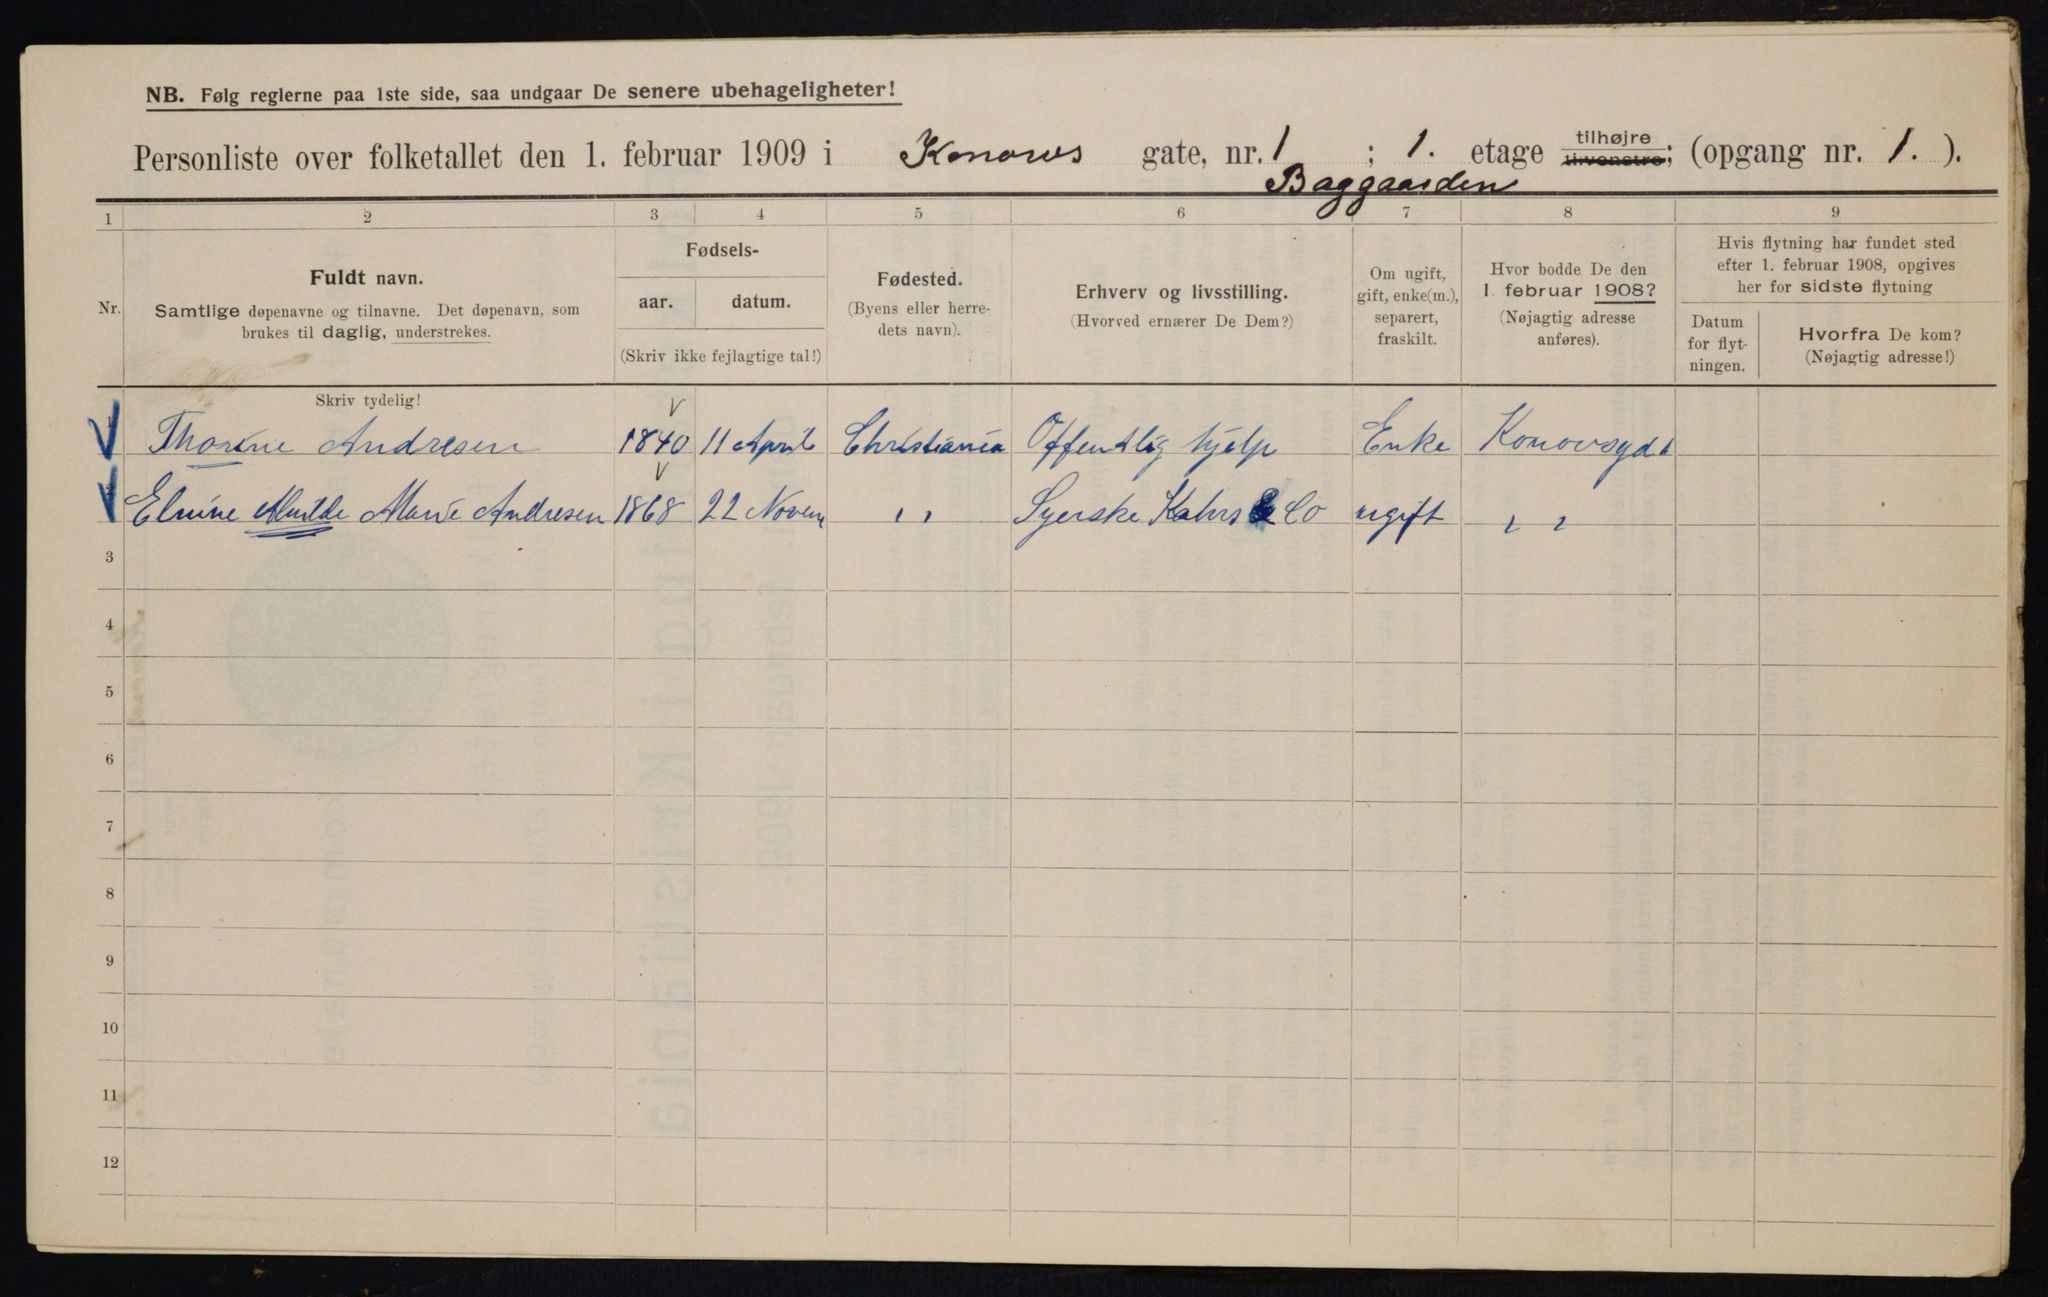 NB. Følg reglerne paa 1ste side, saa undgaar De senere ubehageligheter!
Personliste over folketallet den 1. februar 1909 i Konows gate, nr. 1 ; 1. etage tilhøjre tilvenstre; (opgang nr. 1. ).
Baggaarden
1 2 3 4 5 6 7 8 9
Nr.
Fuldt navn.
Samtlige døpenavne og tilnavne. Det døpenavn, som
brukes til daglig, understrekes.
Skriv tydelig!
Fødsels-
aar. datum.
(Skriv ikke fejlagtige tal!)
Fødested.
(Byens eller herre-
dets navn).
Erhverv og livsstilling.
(Hvorved ernærer De Dem?)
Om ugift,
gift, enke(m.),
separert,
fraskilt.
Hvor bodde De den
1. februar 1908?
(Nøjagtig adresse
anføres).
Hvis flytning har fundet sted
efter 1. februar 1908, opgives
her for sidste flytning
Datum
for flyt-
ningen.
Hvorfra De kom?
(Nøjagtig adresse!)
Thorine Andresen 1840 11 April Christiania Offentlig hjelp Enke Konowsgd 1
Elvine Marie Andresen 1868 22 Novem " Syerske Kahrs & Co ugift " "
3
4
5
6
7
8
9
10
11
12